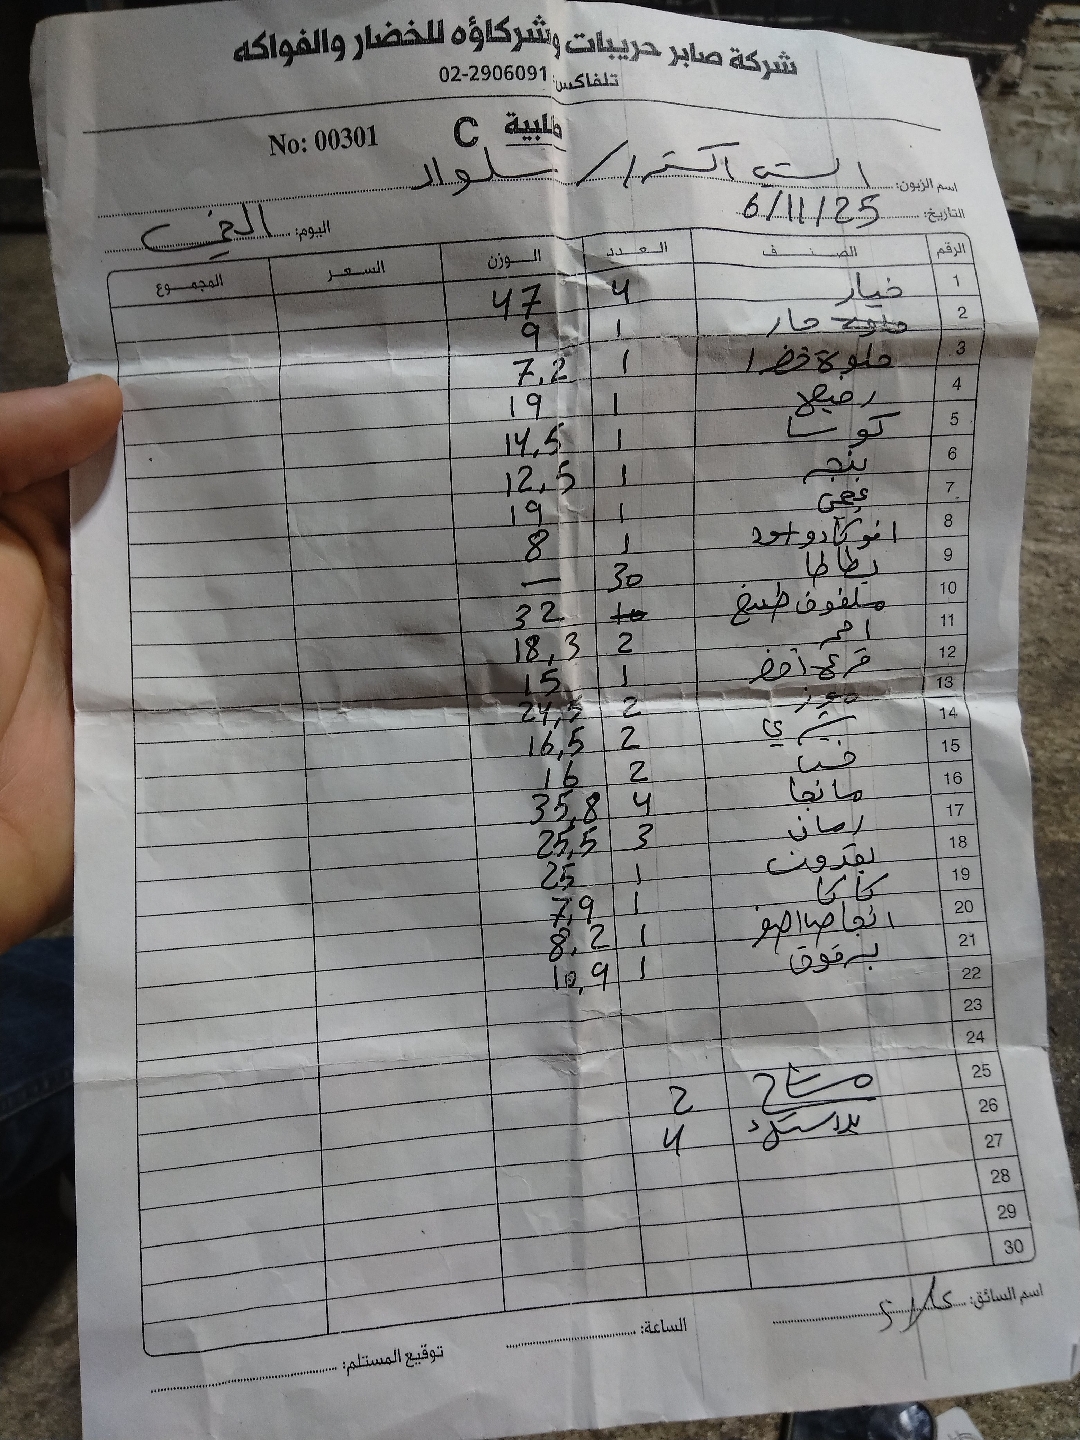 شركة صابر حريبات وشركاؤه للخضار والفواكه
تلفاكس: 02-2906091
طلبية C No: 00301
اسم الزبون: / سلواد
التاريخ: 6/11/25 اليوم:
الرقم الصنف العدد الوزن السعر المجموع
1 خيار 4 47
2 حار 1 9
3 حلوة خضرا 1 7.2
4 1 19
5 كوسا 1 14.5
6 بتنجر 1 12.5
7 عجمي 1 19
8 افوكادو اسود 1 8
9 بطاطا 30 —
10 ملفوف طبيخ 10 32
11 احمر 2 18,3
12 1 15
13 موز 2 24,5
14 2 16,5
15 2 16
16 مانجا 4 35,8
17 رمان 3 25,5
18 بقدونس 1 25
19 كاكا 1 7,9
20 انجاص اصفر 1 8,2
21 برقوق 1 10,9
22
23
24
25 مشاح 2
26 4
27
28
29
30
اسم السائق: علاء
الساعة:
توقيع المستلم: